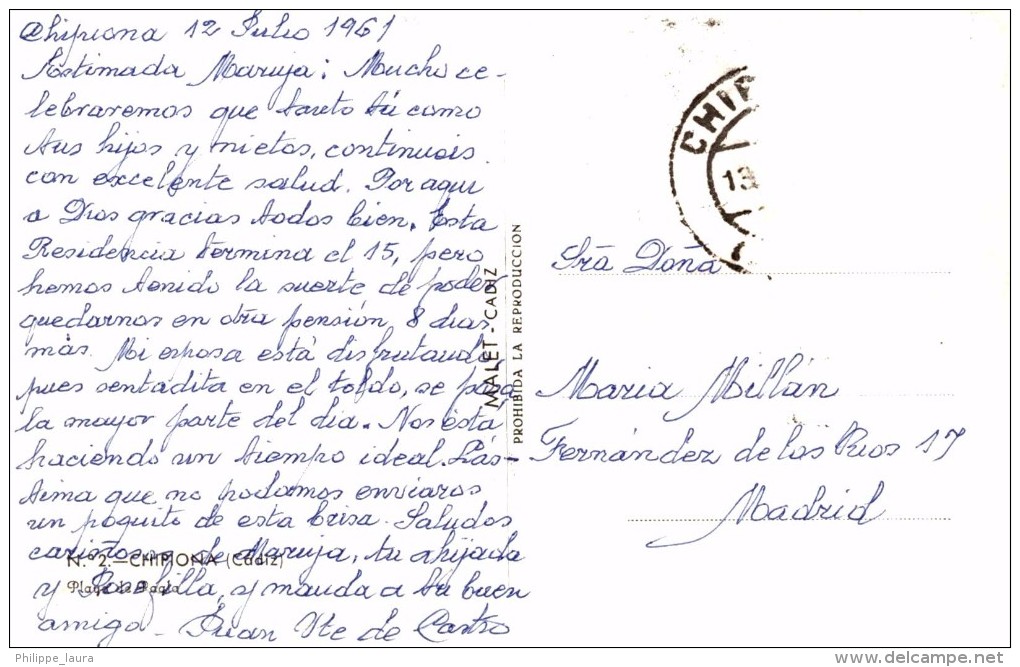 Chipiona 12 Julio 1961
Estimada Maruja: Mucho ce-
lebraremos que tanto tú como
tus hijos y nietos, continuais
con excelente salud. Por aqui
a Dios gracias todos bien. Esta
Residencia termina el 15, pero
hemos tenido la suerte de poder
quedarnos en otra pensión 8 dias
más. Mi esposa está disfrutando
pues sentadita en el toldo, se pasa
la mayor parte del dia. Nos ésta
haciendo un tiempo ideal. Lás-
tima que no podamos enviaros
un poquito de esta brisa. Saludos
cariñosos de Maruja, tu ahijada
y Josefilla, y manda a tu buen
amigo - Juan Vte de Castro
N.º 2.-CHIPIONA (Cádiz)
Playa de Regla
MALET - CADIZ
PROHIBIDA LA REPRODUCCION
CHIP
13
Srã Doña
Maria Millán
Fernández de los Rios 17
Madrid
Philippe_laura
delcampe.net